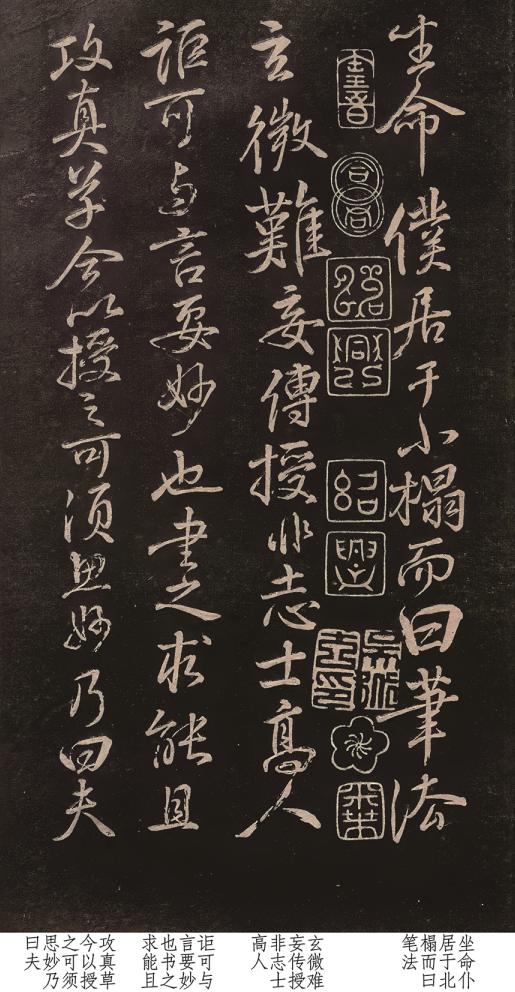 坐命僕居于小榻而曰筆法
合同
紹
興
紹
興
玄微難妄傳授非志士高人
詎可与言要妙也書之求能且
攻真草今以授之可須思妙乃曰夫
坐命仆
居于北
榻而曰
笔法
玄微难
妄传授
非志士
高人
讵可与
言要妙
也书之
求能且
攻真草
今以授
之可须
思妙乃
曰夫